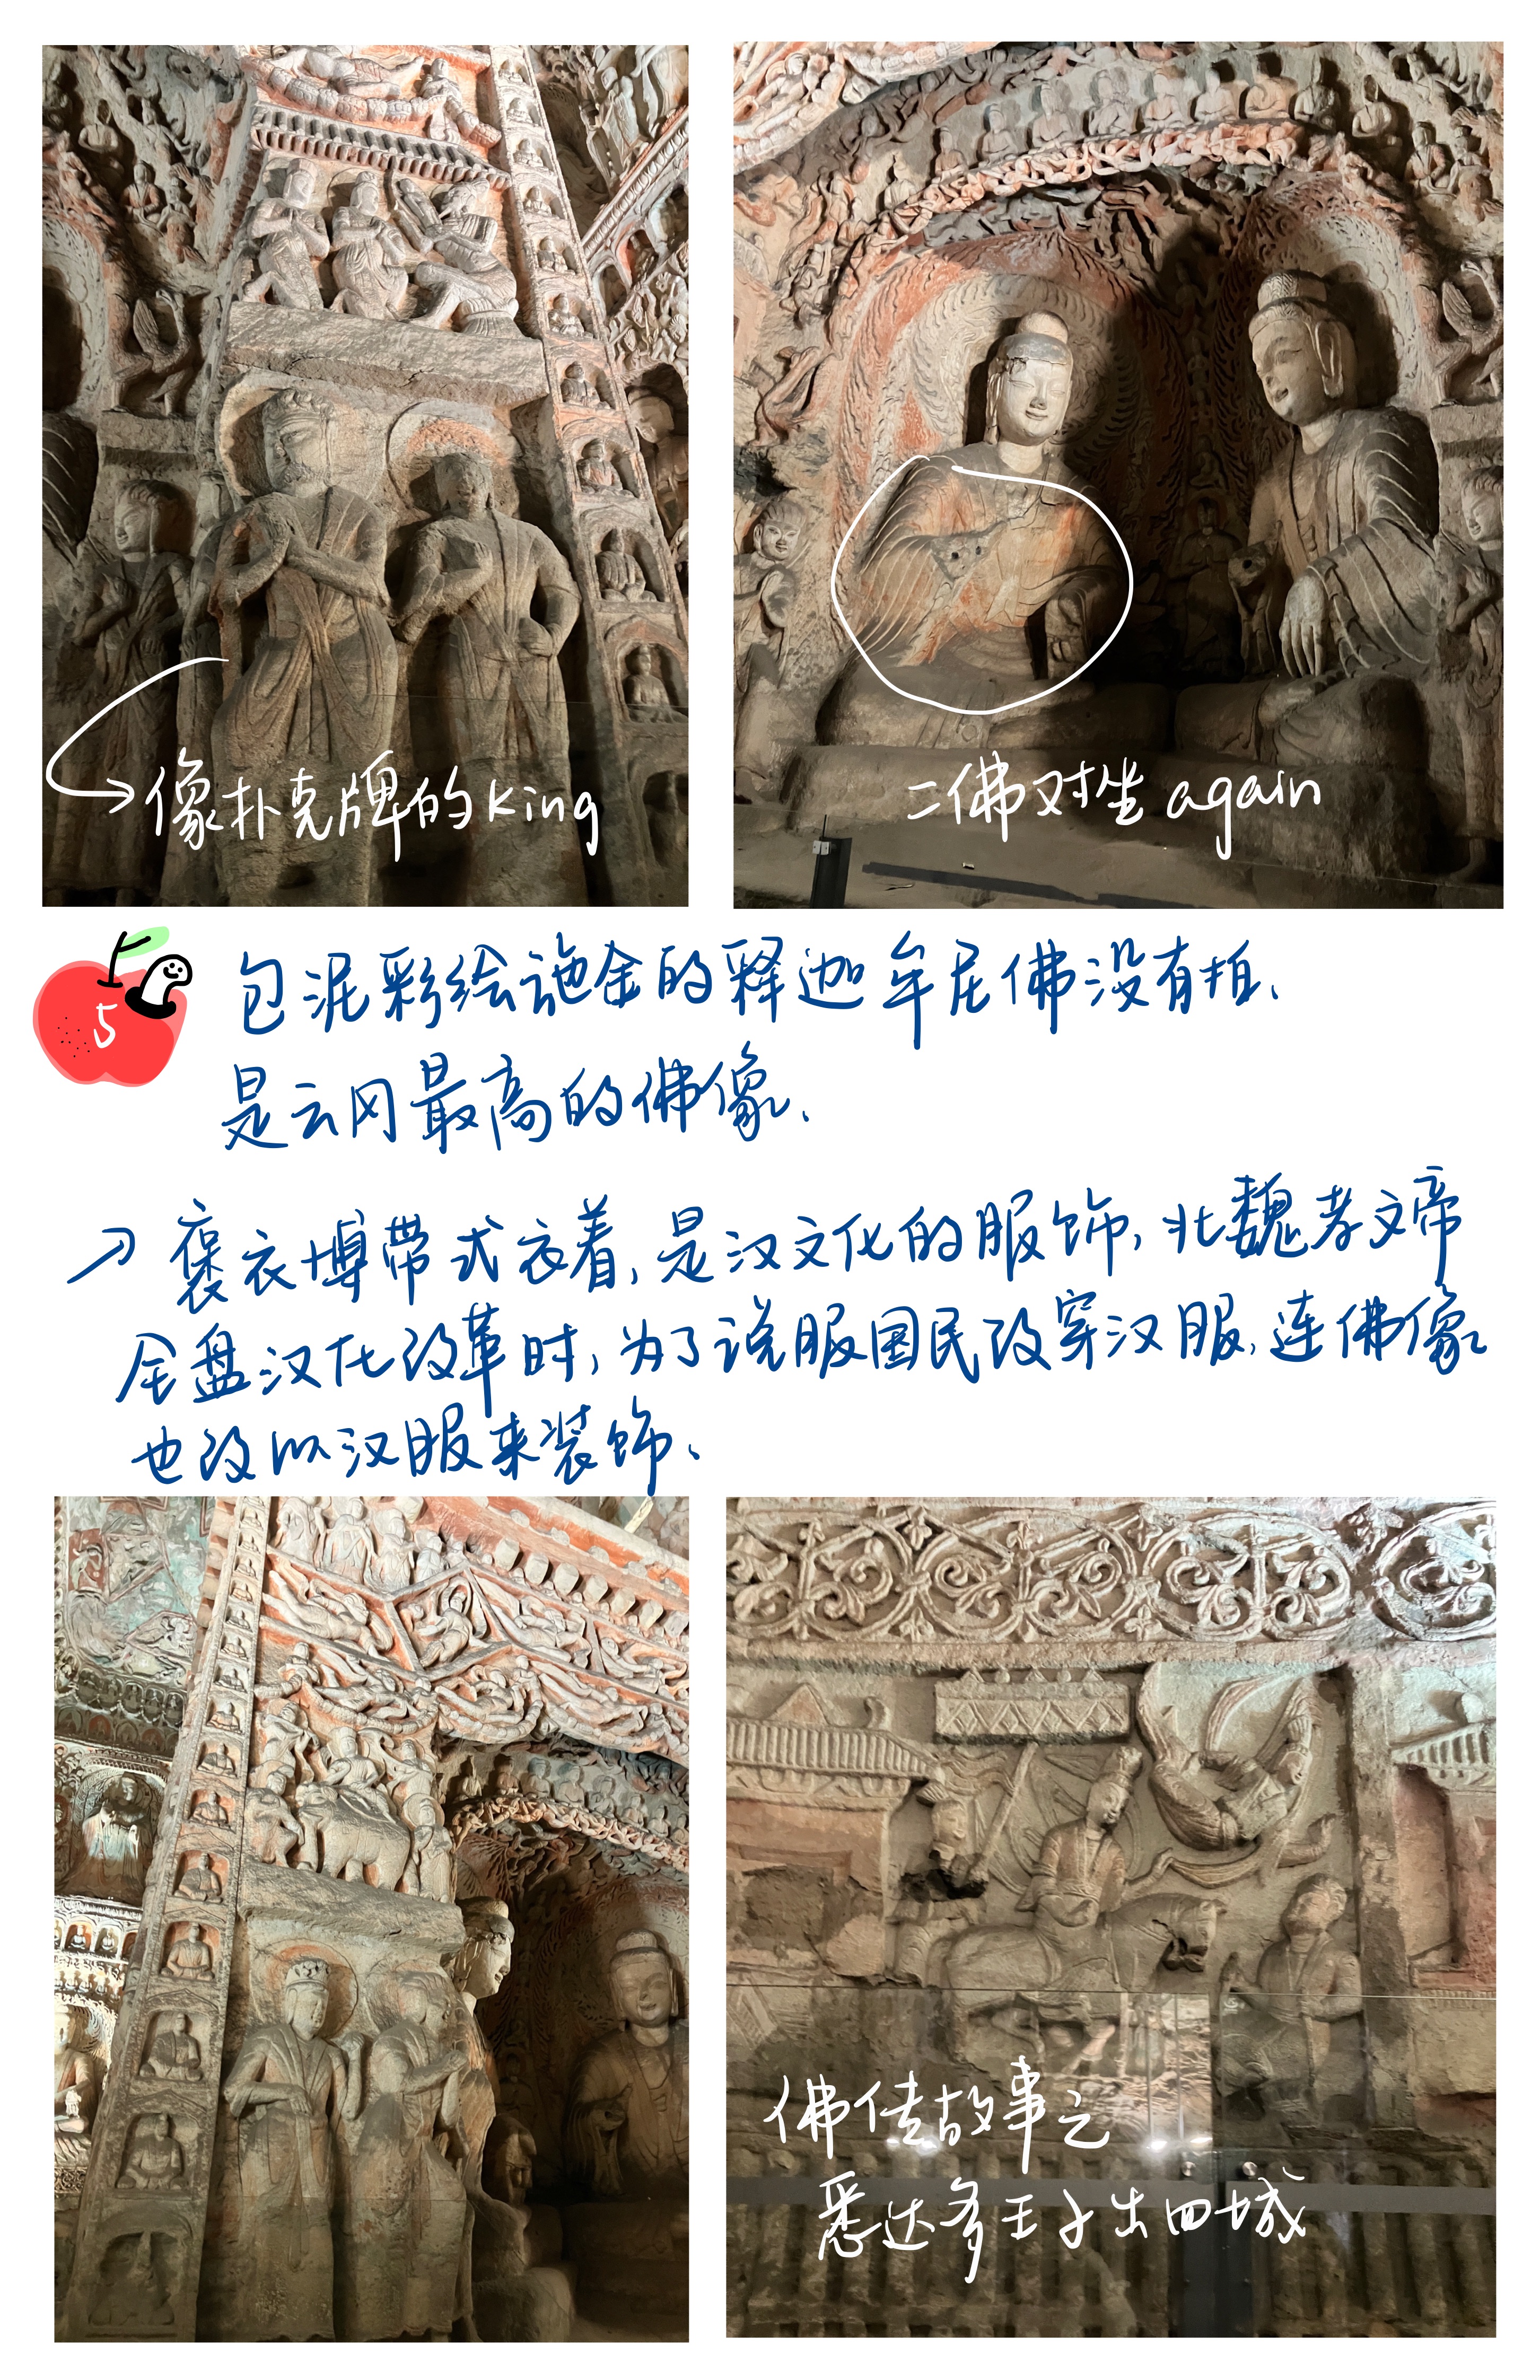 像扑克牌的king
二佛对坐again
5
包泥彩绘施金的释迦牟尼佛没有拍、
是云冈最高的佛像、
褒衣博带式衣着,是汉文化的服饰,北魏孝文帝
全盘汉化改革时,为了说服国民改穿汉服,连佛像
也改以汉服来装饰、
佛传故事之
悉达多王子出四城